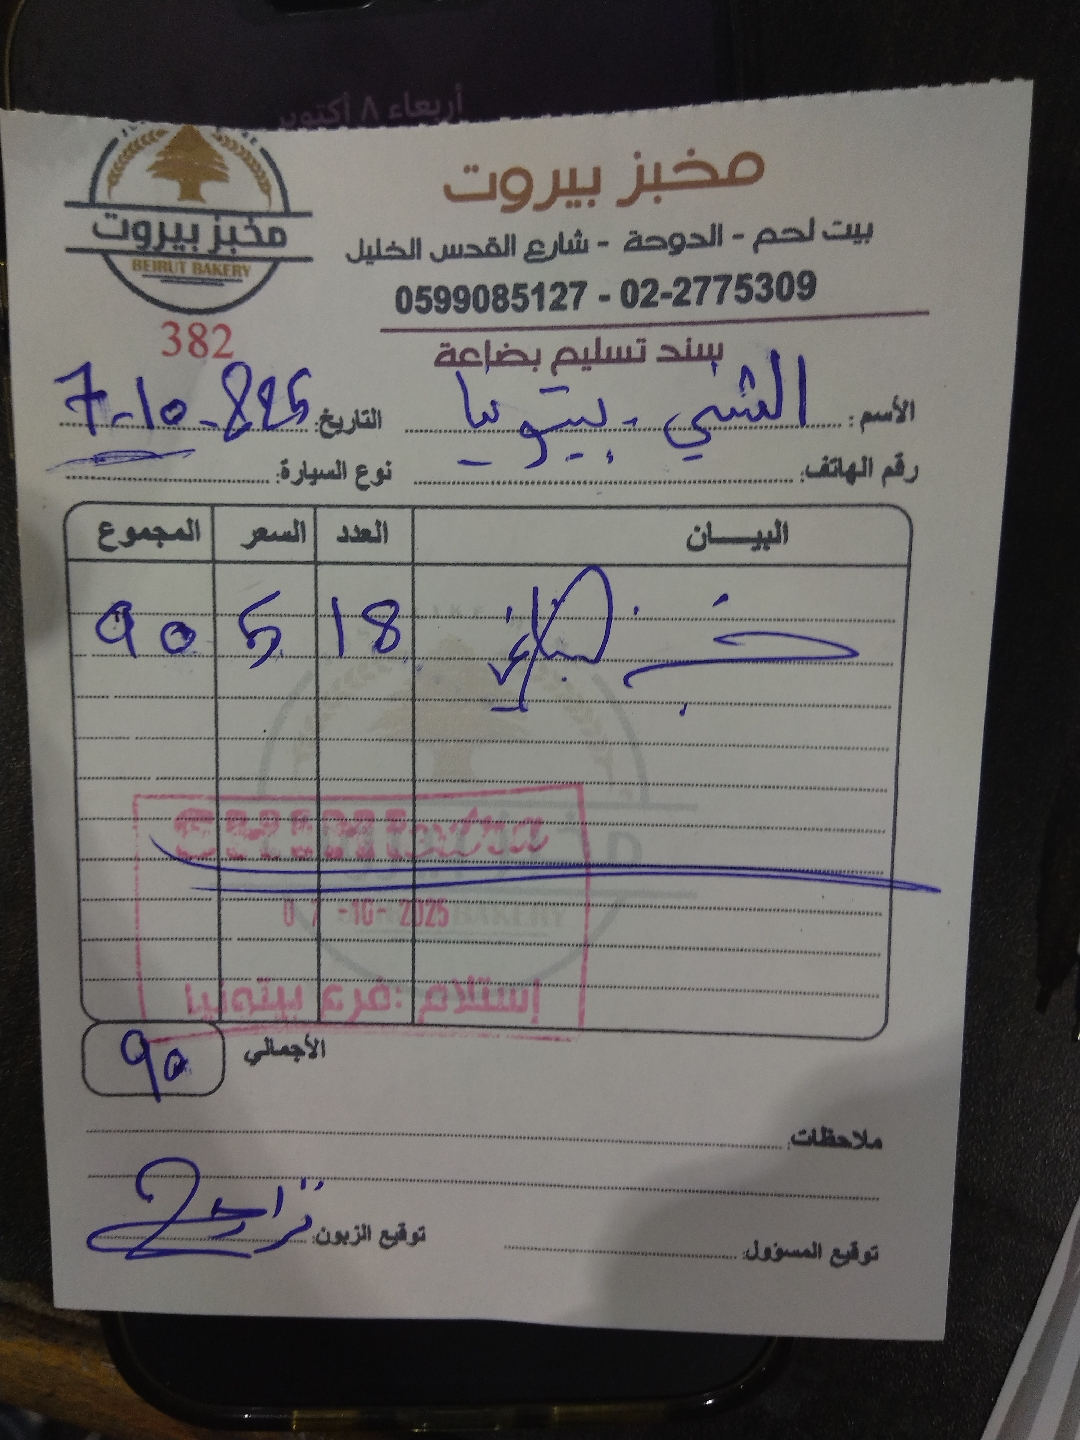 أربعاء ٨ أكتوبر
مخبز بيروت
BEIRUT BAKERY
مخبز بيروت
بيت لحم - الدوحة - شارع القدس الخليل
0599085127 - 02-2775309
382
سند تسليم بضاعة
الأسم: الشني - بيتونيا
التاريخ: 7-10-2025
رقم الهاتف:
نوع السيارة:
البيـــان العدد السعر المجموع
خبز لبناني 18 5 90
07-10-2025
إستلام : فرع بيتونيا
الأجمالي 90
ملاحظات:
توقيع المسؤول:
توقيع الزبون: